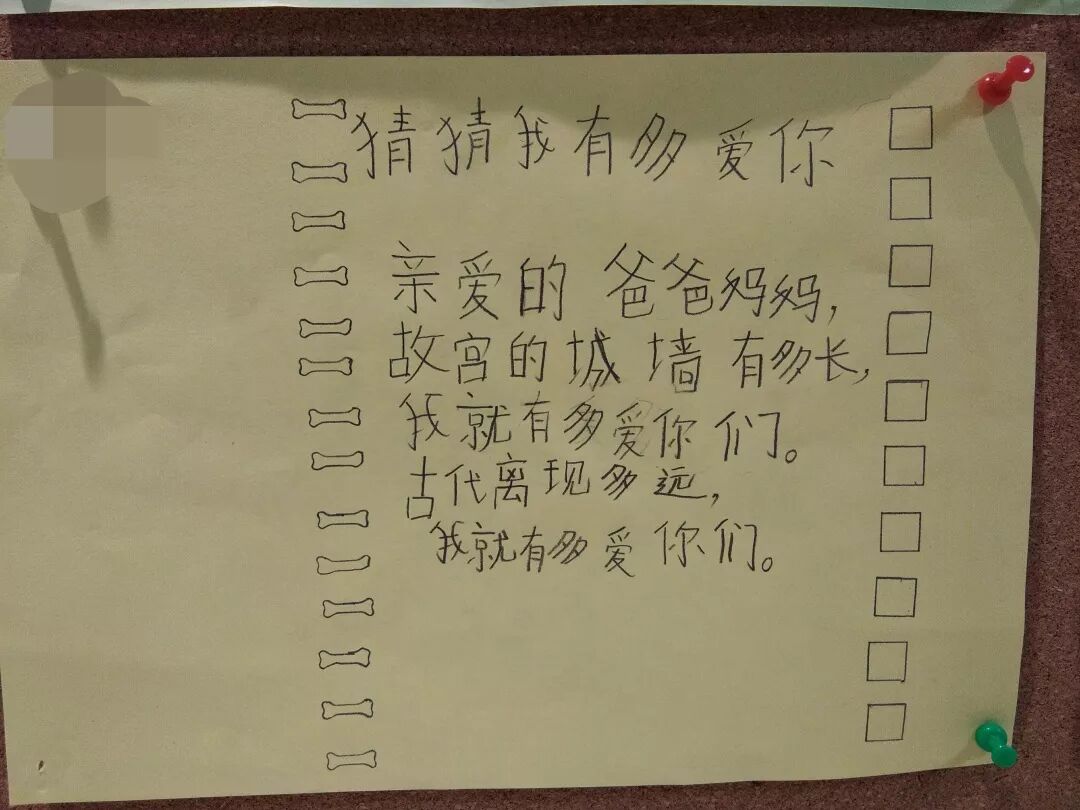 猜猜我有多爱你
亲爱的爸爸妈妈,
故宫的城墙有多长,
我就有多爱你们。
古代离现多远,
我就有多爱你们。